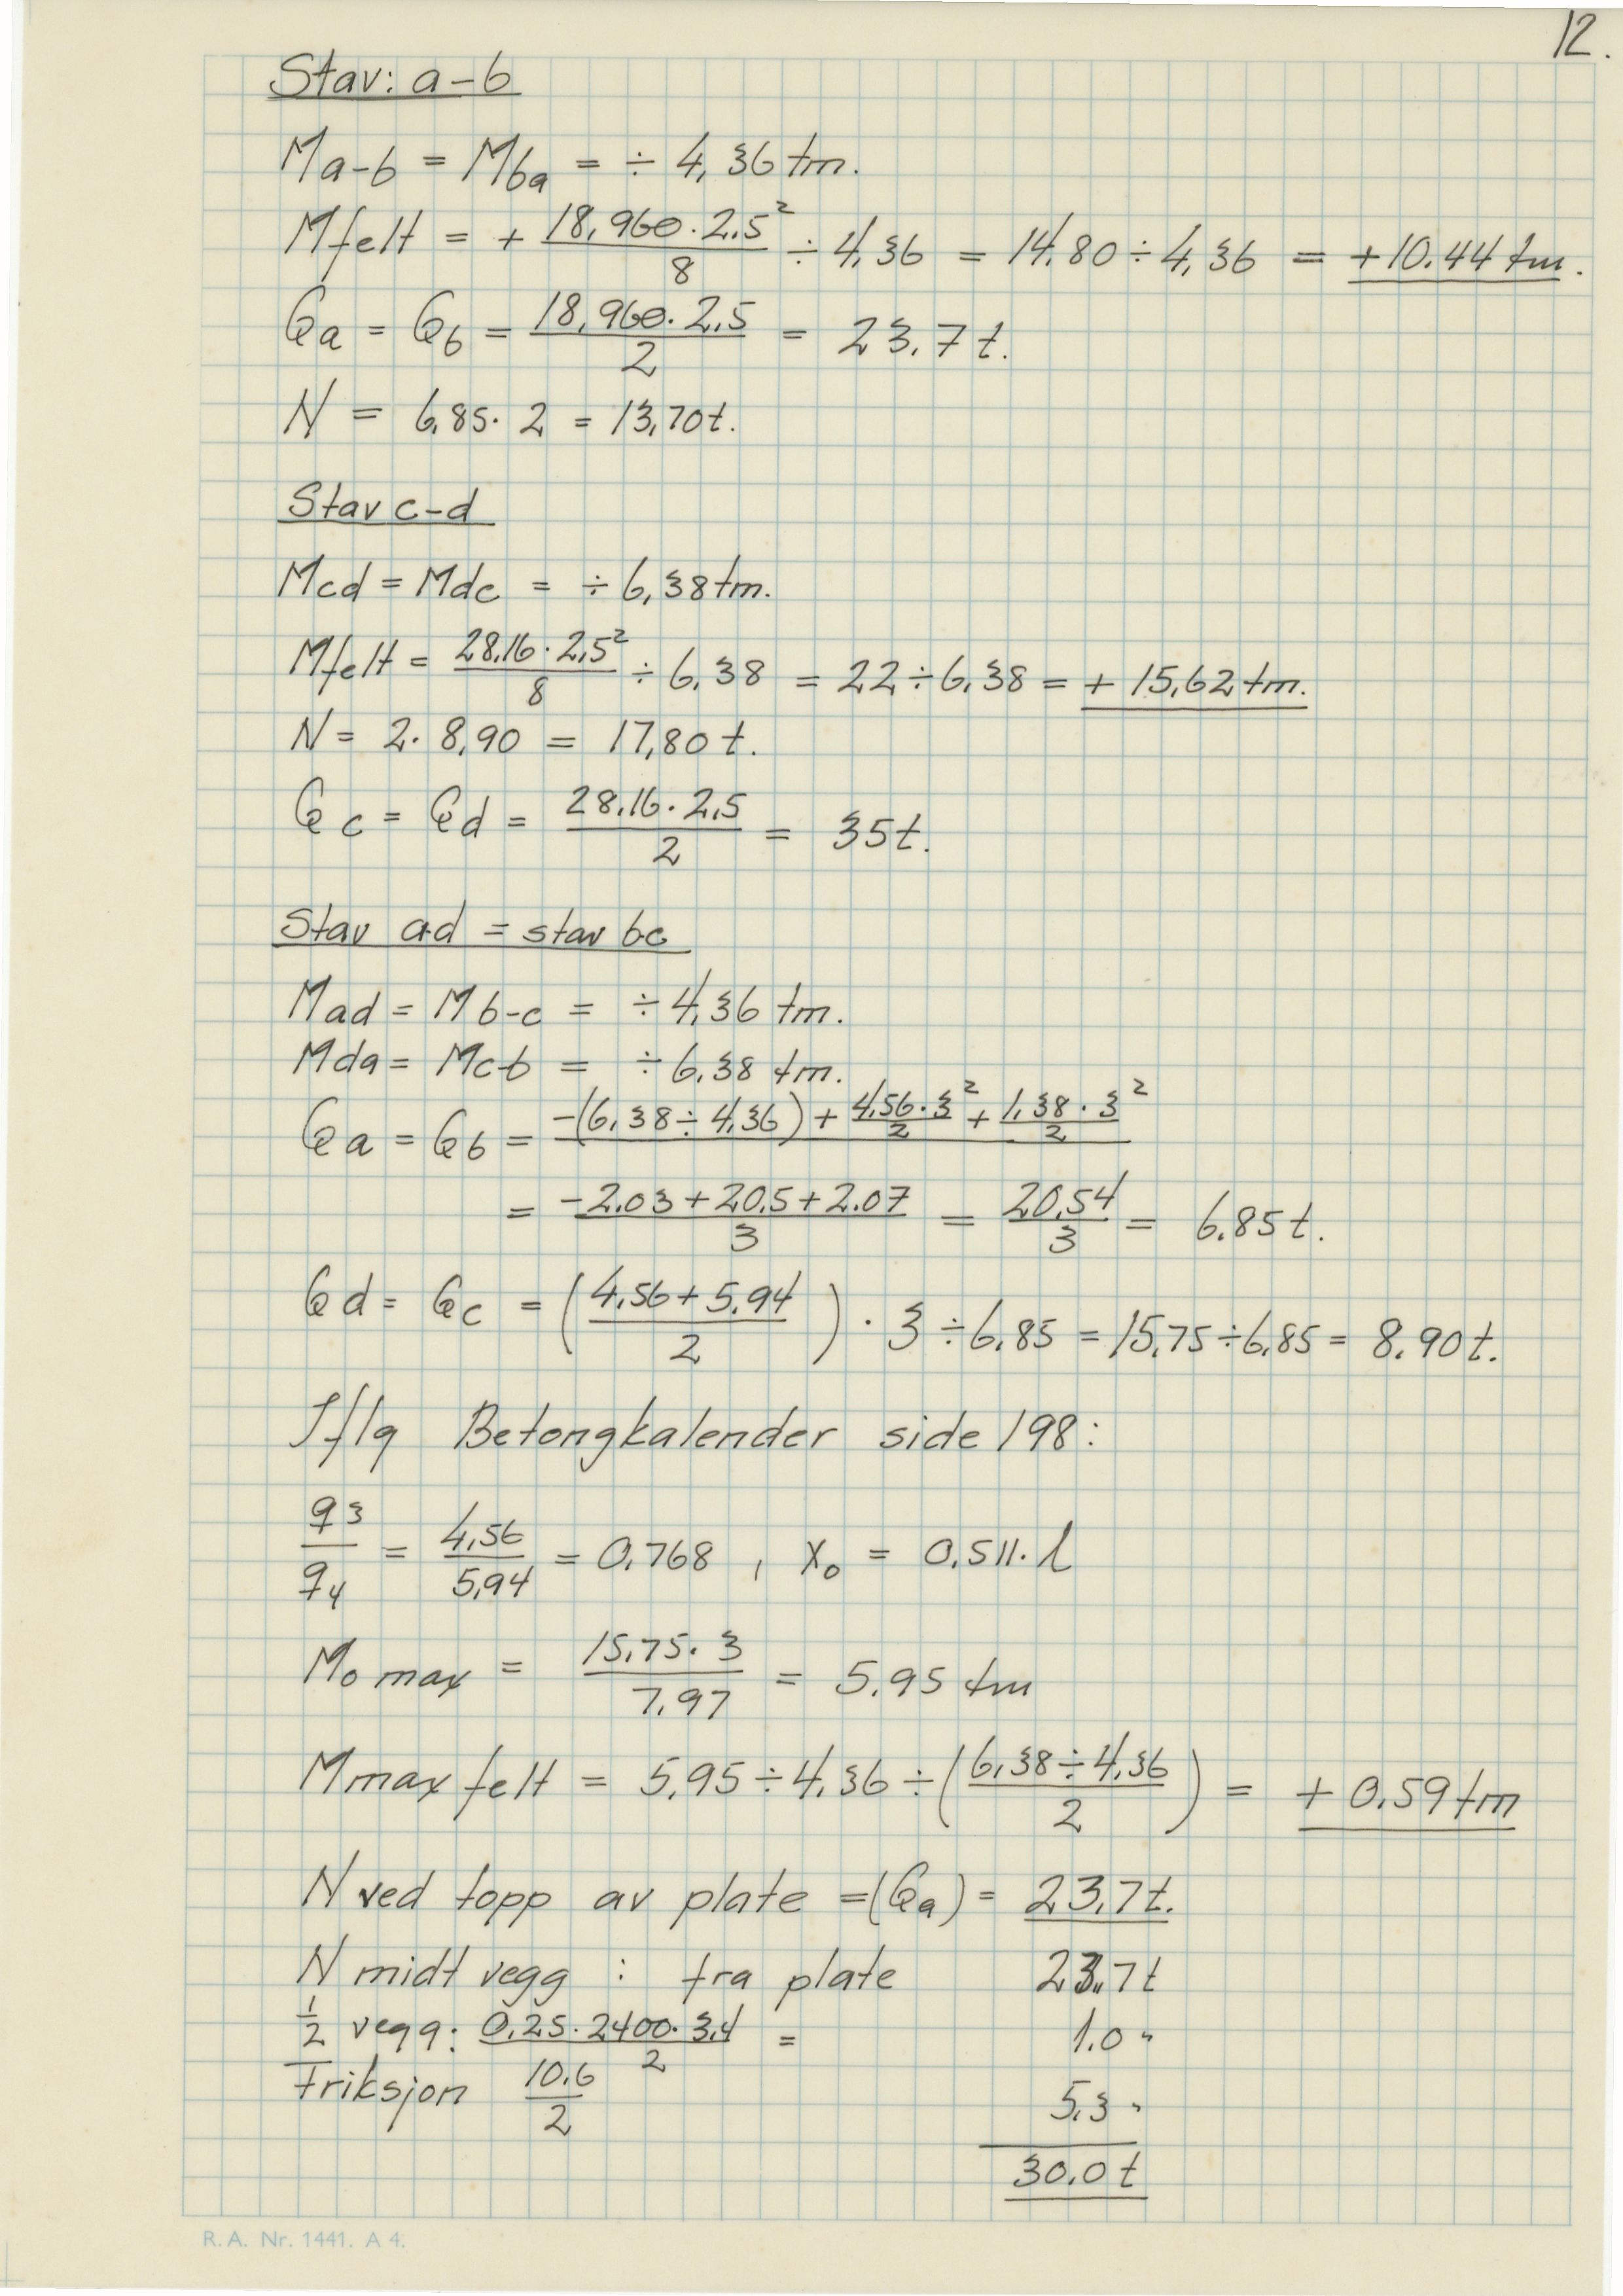 12.
Stav: a-b
Ma-b = Mba = ÷ 4,36 tm.
Mfelt = + 18,960·2,5² / 8 ÷ 4,36 = 14,80 ÷ 4,36 = +10.44 tm.
Qa = Qb = 18,960·2,5 / 2 = 23,7 t.
N = 6,85·2 = 13,70t.
Stav c-d
Mcd = Mdc = ÷ 6,38 tm.
Mfelt = 28,16·2,5² / 8 ÷ 6,38 = 22 ÷ 6,38 = + 15,62 tm.
N = 2·8,90 = 17,80 t.
Qc = Qd = 28,16·2,5 / 2 = 35t.
Stav ad = stav bc
Mad = Mb-c = ÷ 4,36 tm.
Mda = Mcb = ÷ 6,38 tm.
Qa = Qb = -(6,38 ÷ 4,36) + 4,56·3² / 2 + 1,38·3² / 2
= -2.03 + 20,5 + 2.07 / 3 = 20,54 / 3 = 6.85 t.
Qd = Qc = (4,56 + 5,94 / 2) · 3 ÷ 6,85 = 15,75 ÷ 6,85 = 8,90 t.
Iflg Betongkalender side 198:
q3 / q4 = 4,56 / 5,94 = 0,768 , x₀ = 0,511·l
Mo max = 15,75·3 / 7,97 = 5,95 tm
Mmax felt = 5,95 ÷ 4,36 ÷ (6,38 ÷ 4,36 / 2) = + 0,59 tm
N ved topp av plate =(Qa) = 23,7 t.
N midt vegg : fra plate 23,7 t
½ vegg: 0,25·2400·3,4 / 2 = 1.0 "
Friksjon 10,6 / 2 5,3 "
30,0 t
R.A. Nr. 1441. A 4.